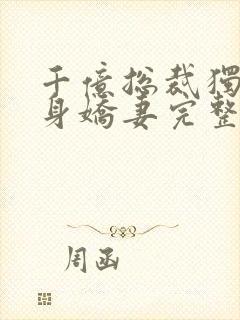 千億總裁獨
身嬌妻完整
周函